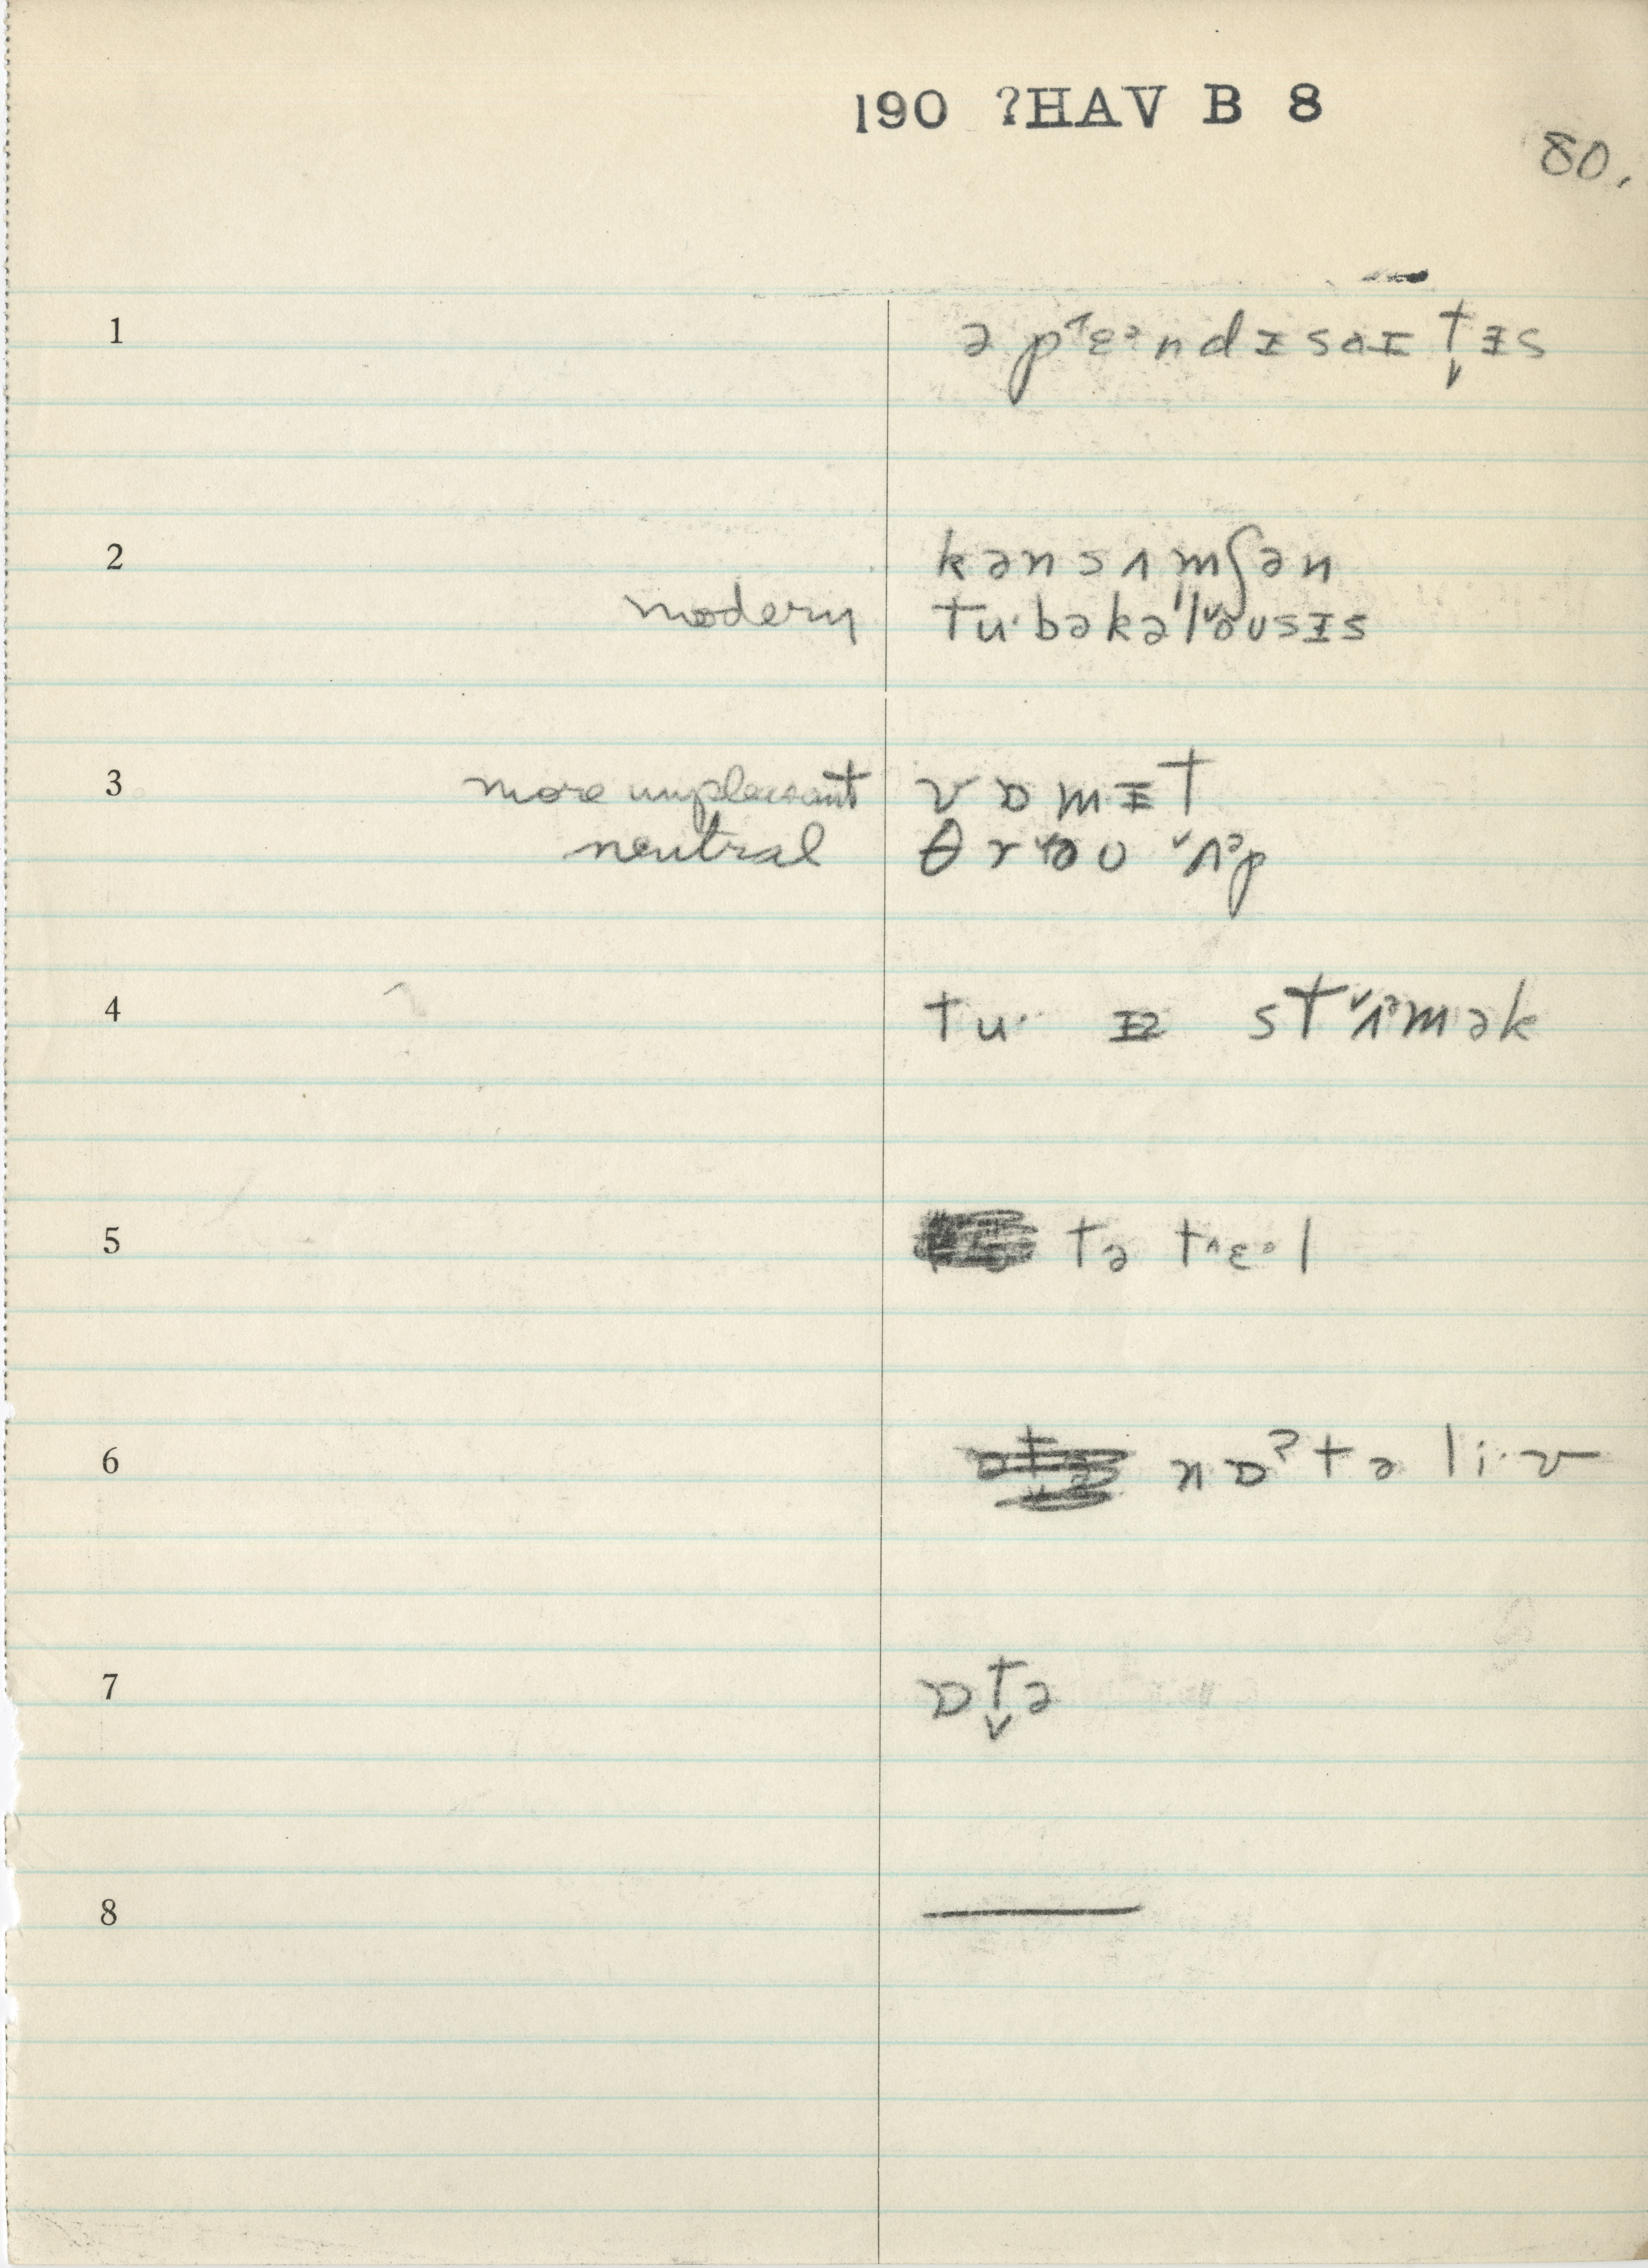 190 ?HAV B 8
80.
1 ə pˈɛᵊndɪsaɪt̬ɨs
2 kənsʌmʃən
modern tu·bəkəlˇoʊsɨs
3 more unpleasant vɒmɨt
neutral θrˇoʊ ˇʌᵊp
4 tu· ɪz stˇʌᵊmək
5 tə t^ɛᵊl
6 nɒˀtə li·v
7 ɒt̬ə
8 —